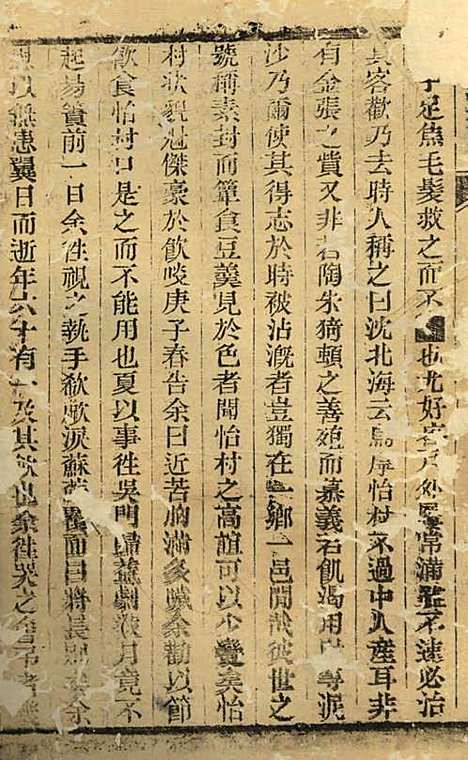 手足焦毛髮救之而不也尤好客戶外屨常滿雖不速必治
具客歡乃去時人稱之曰沈北海云烏虖怡村不過中人產耳非
有金張之貲又非若陶朱猗頓之善殖而慕義若飢渴用財等泥
沙乃爾使其得志於時被沾漑者豈獨在一鄉一邑閒哉彼世之
號稱素封而簞食豆羹見於色者聞怡村之高誼可以少變矣怡
村狀貌魁傑豪於飮啖庚子春告余曰近苦胸滿多痰余勸以節
飮食怡村曰是之而不能用也夏以事徃吳門歸益劇數月竟不
起易簀前一日余徃視之執手欷歔淚蘇蘇面曰將長別余
以無恙翼日而逝年六十有及其也余徃哭之會弔者